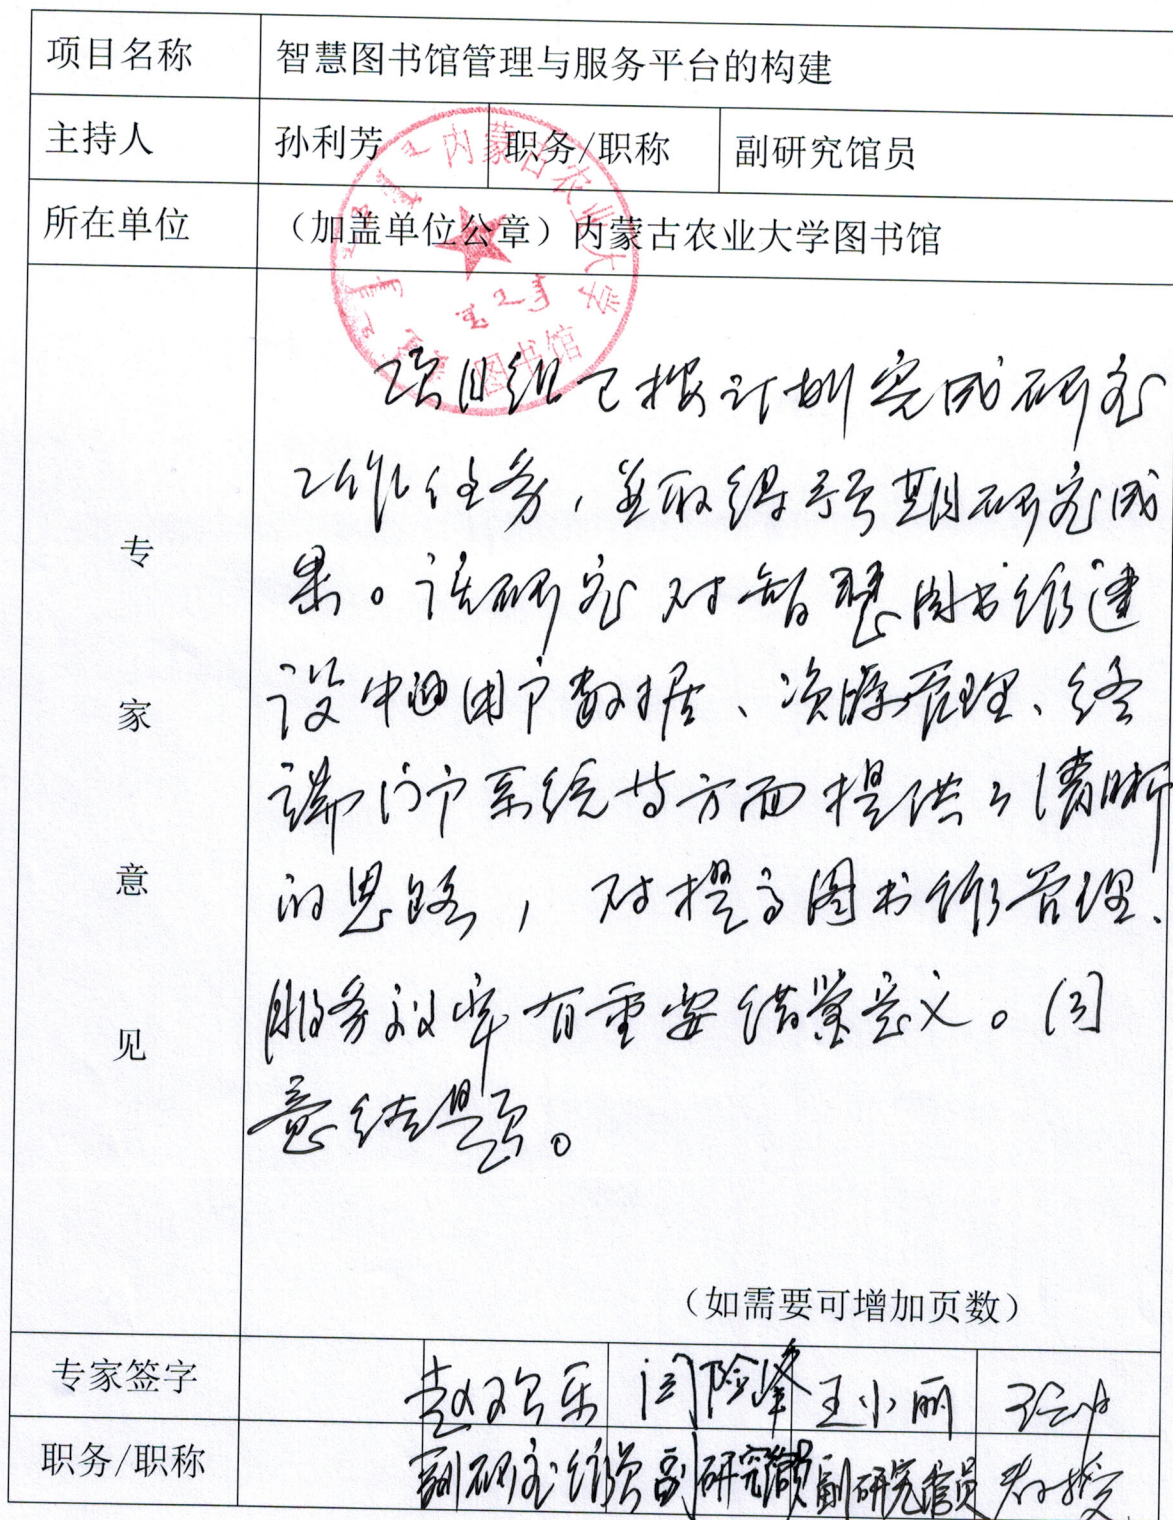 项目名称 智慧图书馆管理与服务平台的构建
主持人 孙利芳 职务/职称 副研究馆员
所在单位 （加盖单位公章）内蒙古农业大学图书馆
内蒙古农业大学
图书馆
专家意见
项目组已按计划完成研究
工作任务，并取得预期研究成
果。该研究对智慧图书馆建
设中的用户数据、资源管理、终
端门户系统等方面提供了清晰
的思路，对提高图书馆管理、
服务效率有重要借鉴意义。同
意结题。
（如需要可增加页数）
专家签字 赵欢乐 闫险峰 王小丽
职务/职称 副研究馆员 副研究馆员 副研究馆员 教授